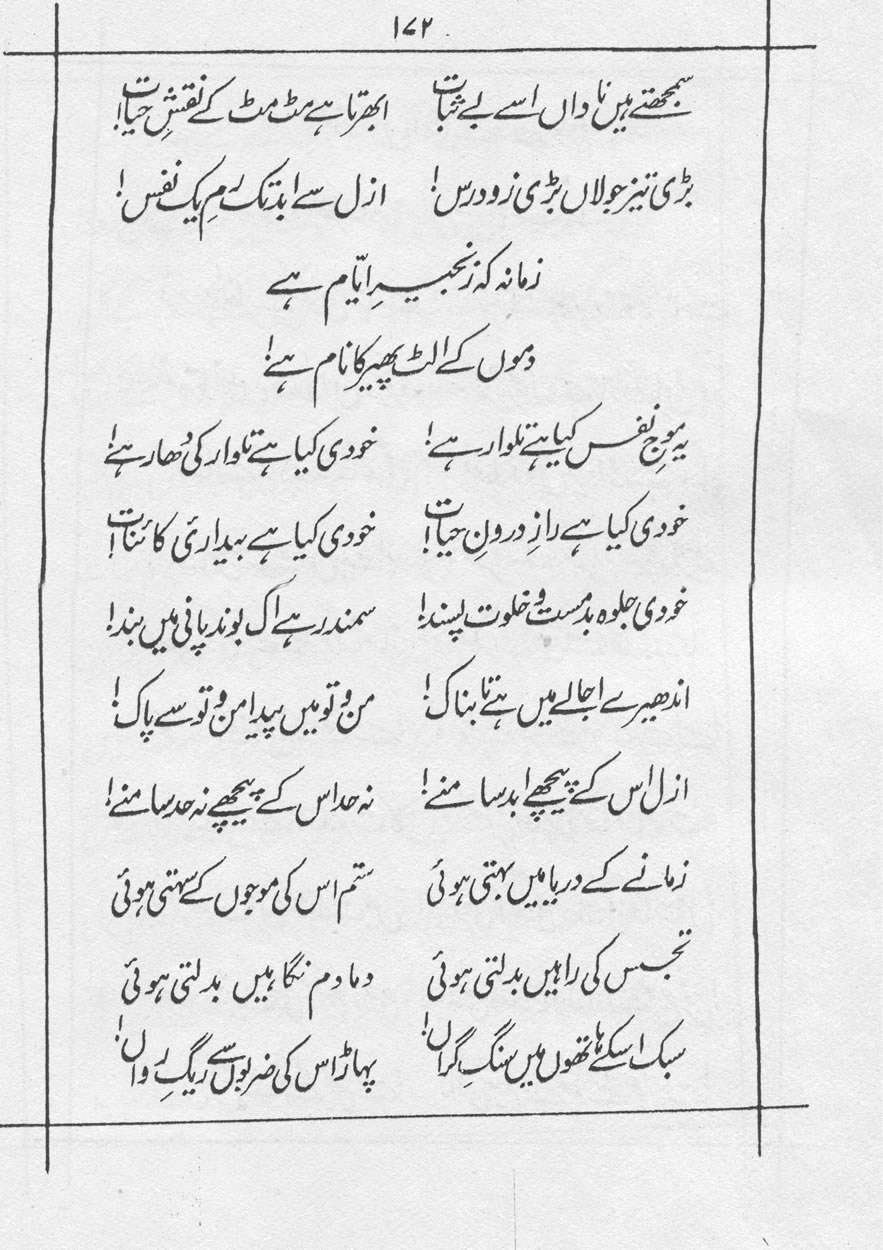 ۱۷۲
سمجھتے ہیں ناداں اسے بے ثبات ابھرتا ہے مٹ مٹ کے نقشِ حیات!
بڑی تیز جولاں بڑی زود رس! ازل سے ابد تک رمِ یک نفس!
زمانہ کہ زنجیرِ ایّام ہے
دموں کے الٹ پھیر کا نام ہے!
یہ موجِ نفس کیا ہے تلوار ہے! خودی کیا ہے تلوار کی دھار ہے!
خودی کیا ہے رازِ درونِ حیات! خودی کیا ہے بیداریٔ کائنات!
خودی جلوہ بدمست و خلوت پسند! سمندر ہے اک بوند پانی میں بند!
اندھیرے اجالے میں ہے تابناک! من و تو میں پیدا من و تو سے پاک!
ازل اس کے پیچھے ابد سامنے! نہ حد اس کے پیچھے نہ حد سامنے!
زمانے کے دریا میں بہتی ہوئی ستم اس کی موجوں کے سہتی ہوئی
تجسس کی راہیں بدلتی ہوئی دمادم نگاہیں بدلتی ہوئی
سبک اسکے ہاتھوں میں سنگِ گراں! پہاڑ اس کی ضربوں سے ریگِ رواں!